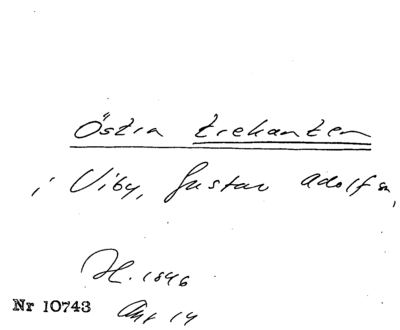 Östra trekanten
i Viby, Gustav Adolf sn,
H. 1846
Nr 10743 Akt 14